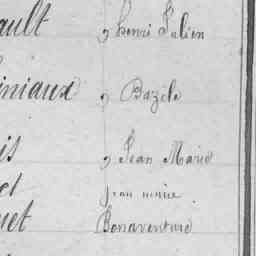 ault , henri Julien
iniaux , Bazile
is , Jean Marie
el jean marie
uet Bonaventure